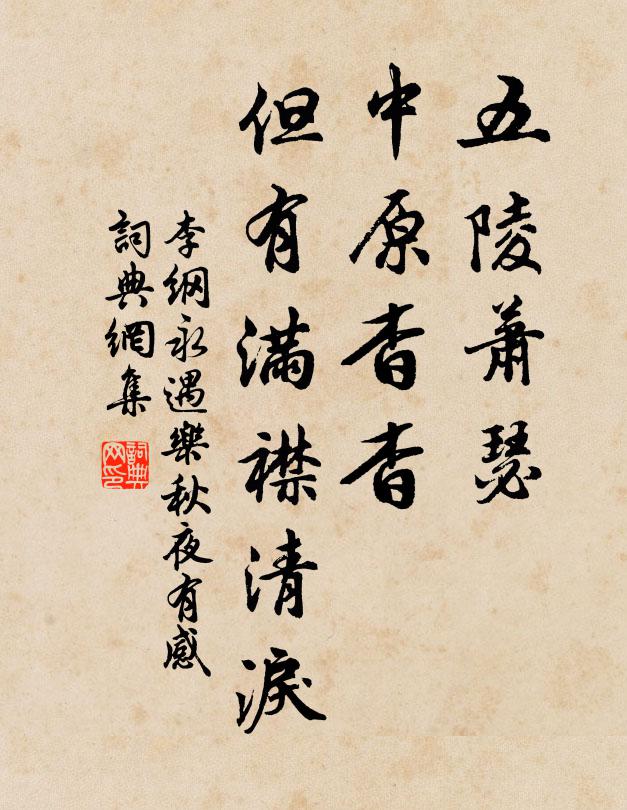 五陵蕭瑟
中原杳杳
但有滿襟清淚
李綱永遇樂秋夜有感
詞典網集
詞典網印